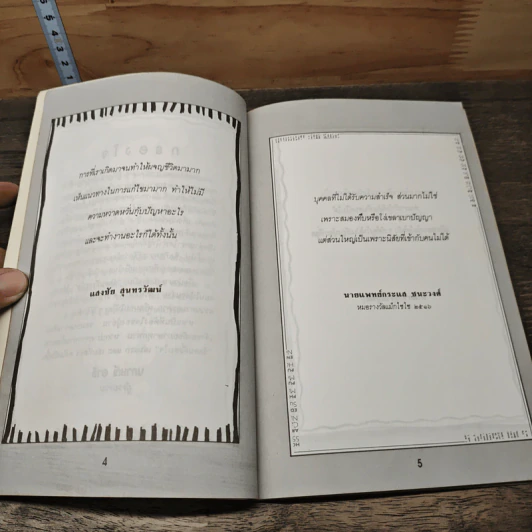 การที่เราเกิดมาจนทำให้ผจญชีวิตมามาก
เห็นแนวทางในการแก้ไขมามาก ทำให้ไม่มี
ความหวาดหวั่นกับปัญหาอะไร
และจะทำงานอะไรก็ได้ทั้งนั้น
แสงชัย สุนทรวัฒน์
4
บุคคลที่ไม่ได้รับความสำเร็จ ส่วนมากไม่ใช่
เพราะสมองทึบหรือโง่เขลาเบาปัญญา
แต่ส่วนใหญ่เป็นเพราะนิสัยที่เข้ากับคนไม่ได้
นายแพทย์กระแส ชนะวงศ์
หมอรางวัลแม็กไซไซ ๒๕๑๖
5
5
4
3
2